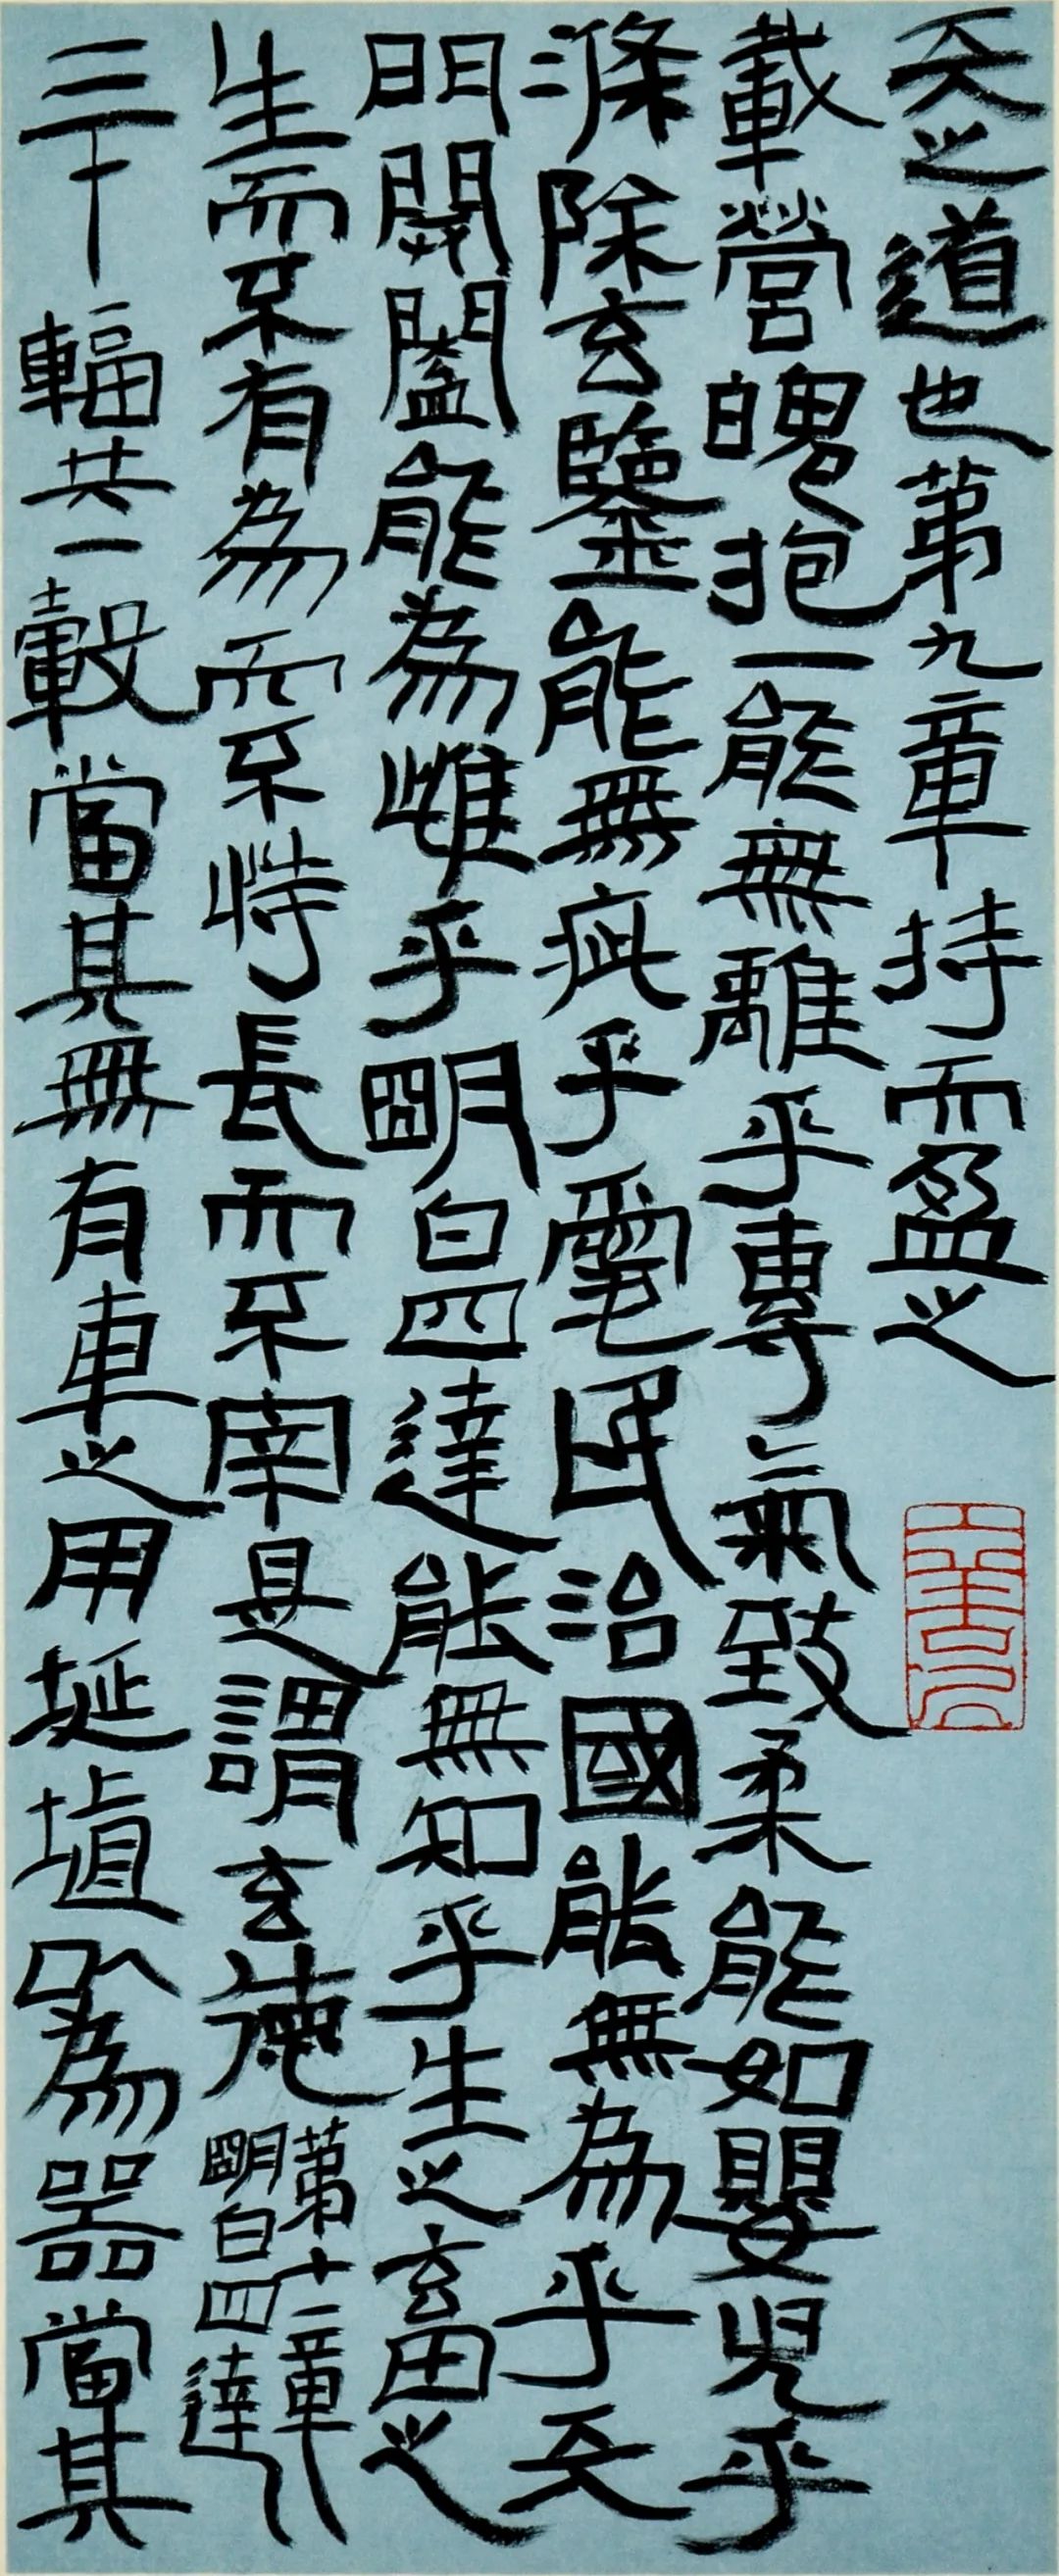 天之道也第九章持而盈之
載營魄抱一能無離乎專氣致柔能如嬰兒乎
滌除玄鑒能無疵乎愛民治國能無為乎天
門開闔能為雌乎明白四達能無知乎生之畜之
生而不有為而不恃長而不宰是謂玄德
第十章
明白四達
三十輻共一轂當其無有車之用埏埴以為器當其